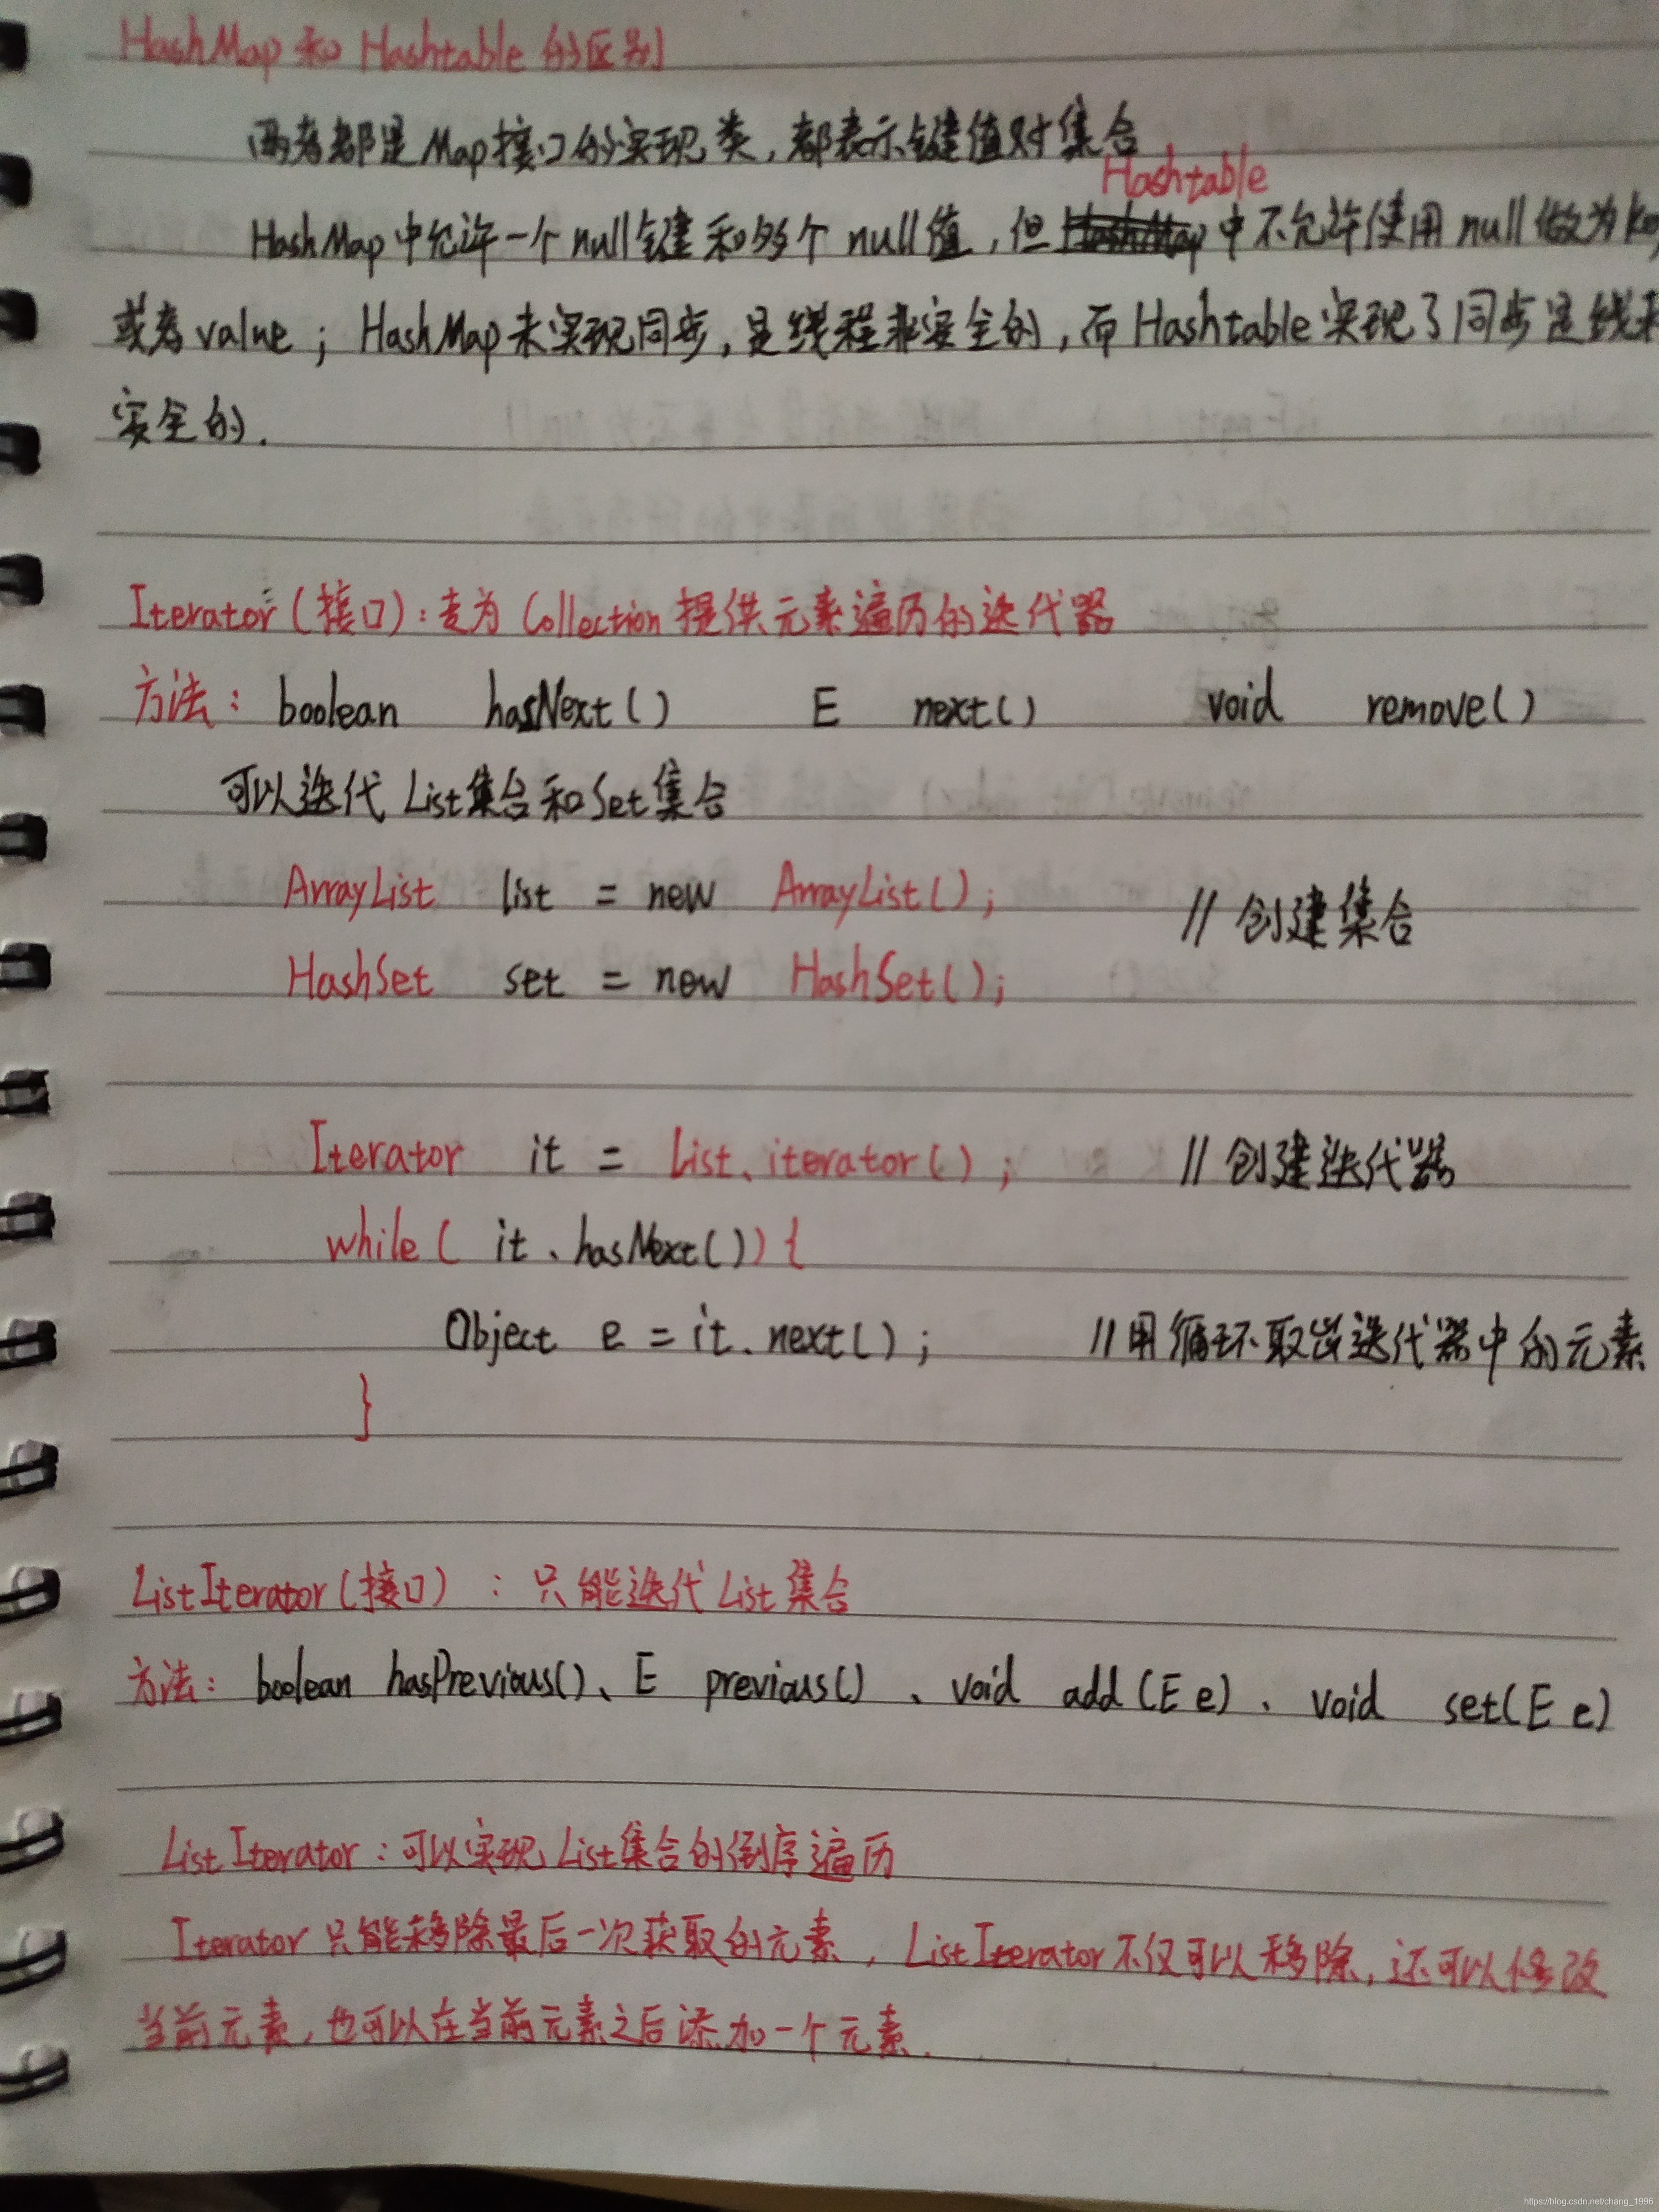 HashMap 和 Hashtable 的区别
两者都是Map接口的实现类,都表示键值对集合
Hashtable
HashMap中允许一个null键和多个null值,但HashMap中不允许使用null做为ke
或者value;HashMap未实现同步,是线程非安全的,而Hashtable实现了同步是线
安全的.
Iterator(接口):专为Collection提供元素遍历的迭代器
方法: boolean hasNext() E next() void remove()
可以迭代List集合和Set集合
ArrayList list = new ArrayList(); //创建集合
HashSet set = new HashSet();
Iterator it = List.iterator(); //创建迭代器
while( it.hasNext()){
Object e = it.next(); //用循环取出迭代器中的元素
}
ListIterator(接口) :只能迭代List集合
方法: boolean hasPrevious()、E previous() 、void add(E e) 、void set(E e)
ListIterator:可以实现List集合的倒序遍历
Iterator只能移除最后一次获取的元素,ListIterator不仅可以移除,还可以修改
当前元素,也可以在当前元素之后添加一个元素.
https://blog.csdn.net/chang_1996